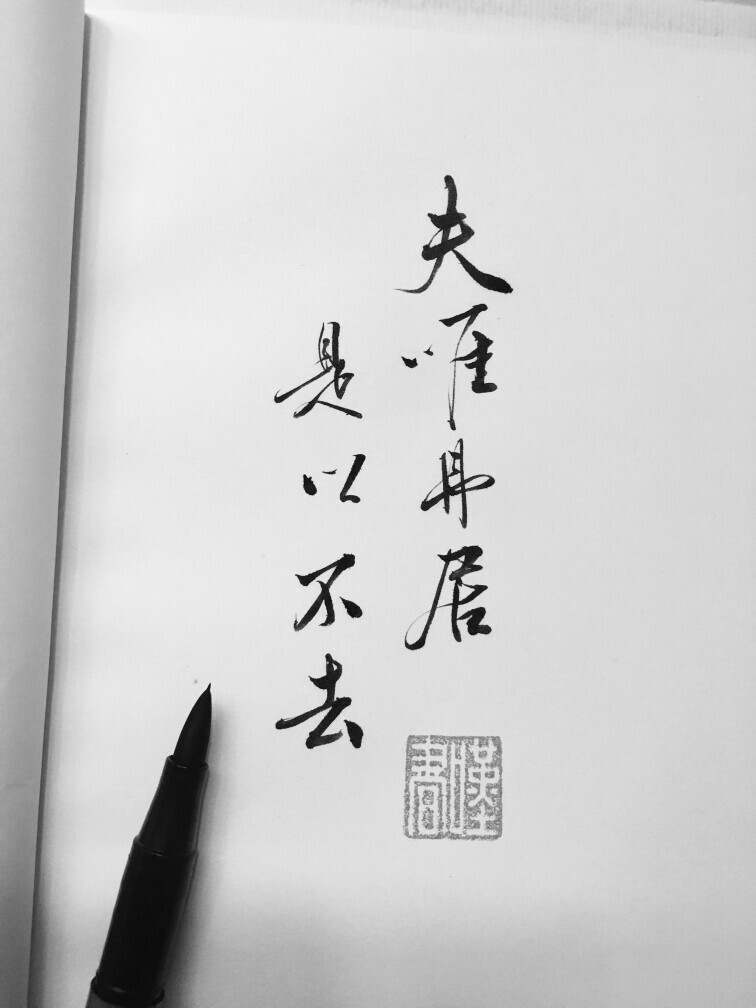 夫唯弗居
是以不去